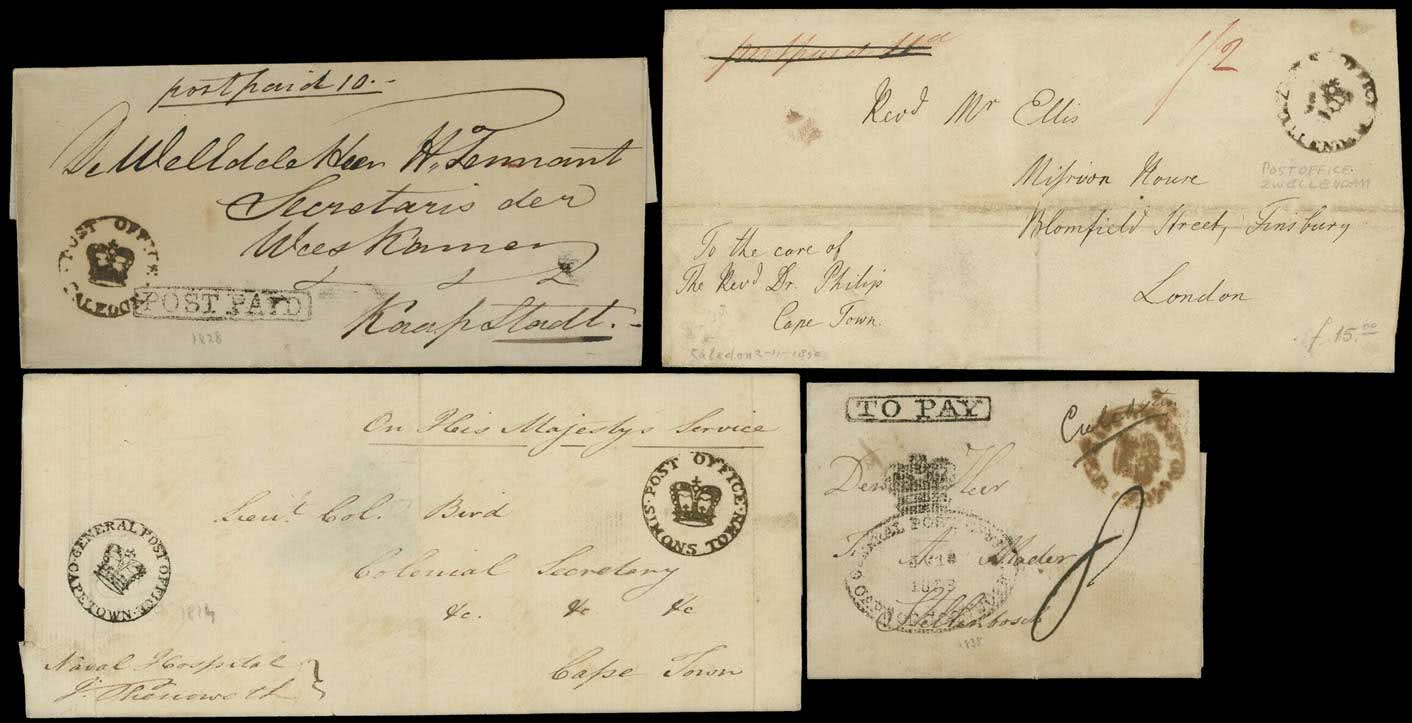 postpaid 10.-
De WelEdele Heer H. Tennant
Secretaris der
Weeskamer
Kaapstadt.-
POST OFFICE
CALEDON
POST PAYD
1828
postpaid 11d
1/2
Revd Mr Ellis
Mission House
Blomfield Street, Finsbury
London
To the care of
The Revd Dr. Philip
Cape Town.
POST OFFICE
ZWELLENDAM
POST OFFICE
ZWELLENDAM
Caledon 2-11-18
f. 15.00
On His Majesty's Service
Lieut. Col. Bird
Colonial Secretary
&c. &c &c
Cape Town
Naval Hospital
POST OFFICE
SIMONS TOWN
GENERAL POST OFFICE
CAPETOWN
TO PAY
Den Heer
Mader
Stellenbosch
GENERAL POST OFFICE
8